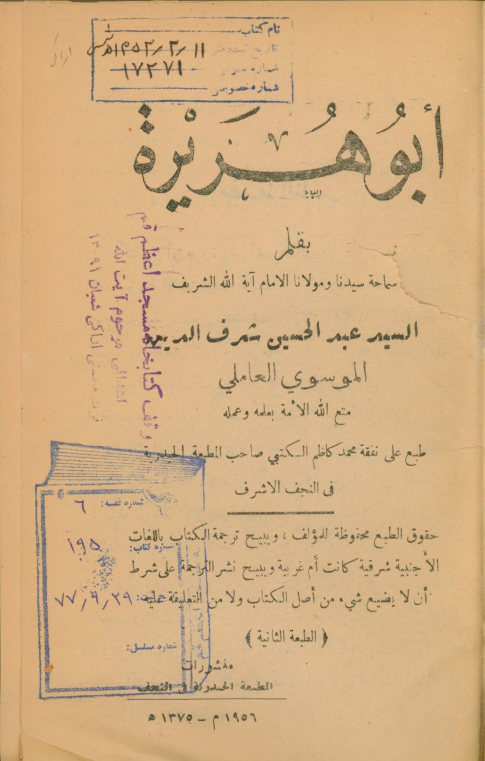 نام کتاب
تاریخ ثبت دفتر ۱۳۵۲/۲/۱۱
شماره عمومی ۱۷۲۷۹
شماره خصوصی
أبو هُرَيْرَة
بقلم
سماحة سيدنا ومولانا الامام آية الله الشريف
السيد عبد الحسين شرف الدين
الموسوي العاملي
متع الله الأمة بعلمه وعمله
طبع على نفقة محمد كاظم الكتبي صاحب المطبعة الحيدرية
في النجف الاشرف
حقوق الطبع محفوظة للمؤلف ، ويبيح ترجمة الكتاب باللغات
الأجنبية شرقية كانت أم غربية ويبيح نشر الترجمة على شرط
أن لا يضيع شيء من أصل الكتاب ولا من التعليقة عليه
﴿ الطبعة الثانية ﴾
منشورات
المطبعة الحيدرية في النجف
١٩٥٦ م – ١٣٧٥ ه
وقف کتابخانه مسجد اعظم قم
مرحوم آیت الله
شماره قفسه: ۶
شماره کتاب: ۱۹۵
۷۷/۹/۲۹
شماره مسلسل: